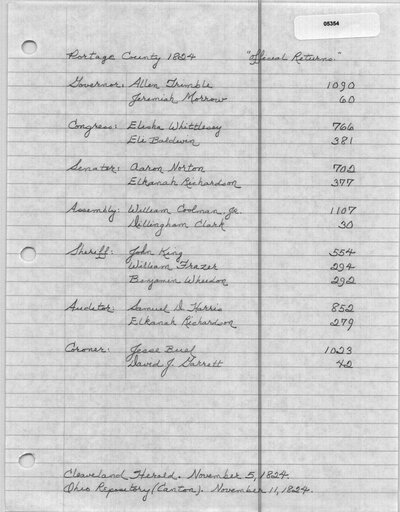 05354
Portage County 1824 "Official Returns."
Governor: Allen Trimble 1090
Jeremiah Morrow 60
Congress: Elisha Whittlesey 766
Eli Baldwin 381
Senator: Aaron Norton 702
Elkanah Richardson 377
Assembly: William Coolman, Jr. 1107
Dillingham Clark 30
Sheriff: John King 554
William Frazer 294
Benjamin Whedon 292
Auditor: Samuel D. Harris 852
Elkanah Richardson 279
Coroner: Jesse Buel 1023
David J. Garrett 42
Cleveland Herald. November 5, 1824.
Ohio Repository (Canton). November 11, 1824.